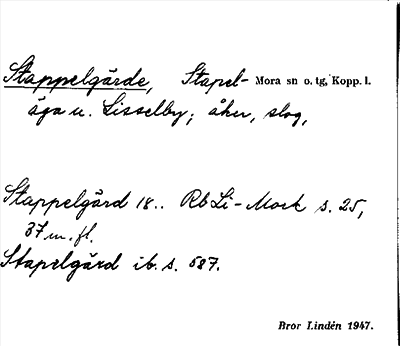 Stappelgärde, Stapel- Mora sn o. tg, Kopp. l.
äga u. Lisselby; åker, slog,
Stappelgård 18.. RbLi-Mork s. 25,
37 m. fl.
Stapelgård ib. s. 587.
Bror Lindén 1947.